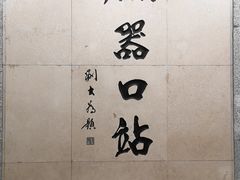 器口站
刘大为题